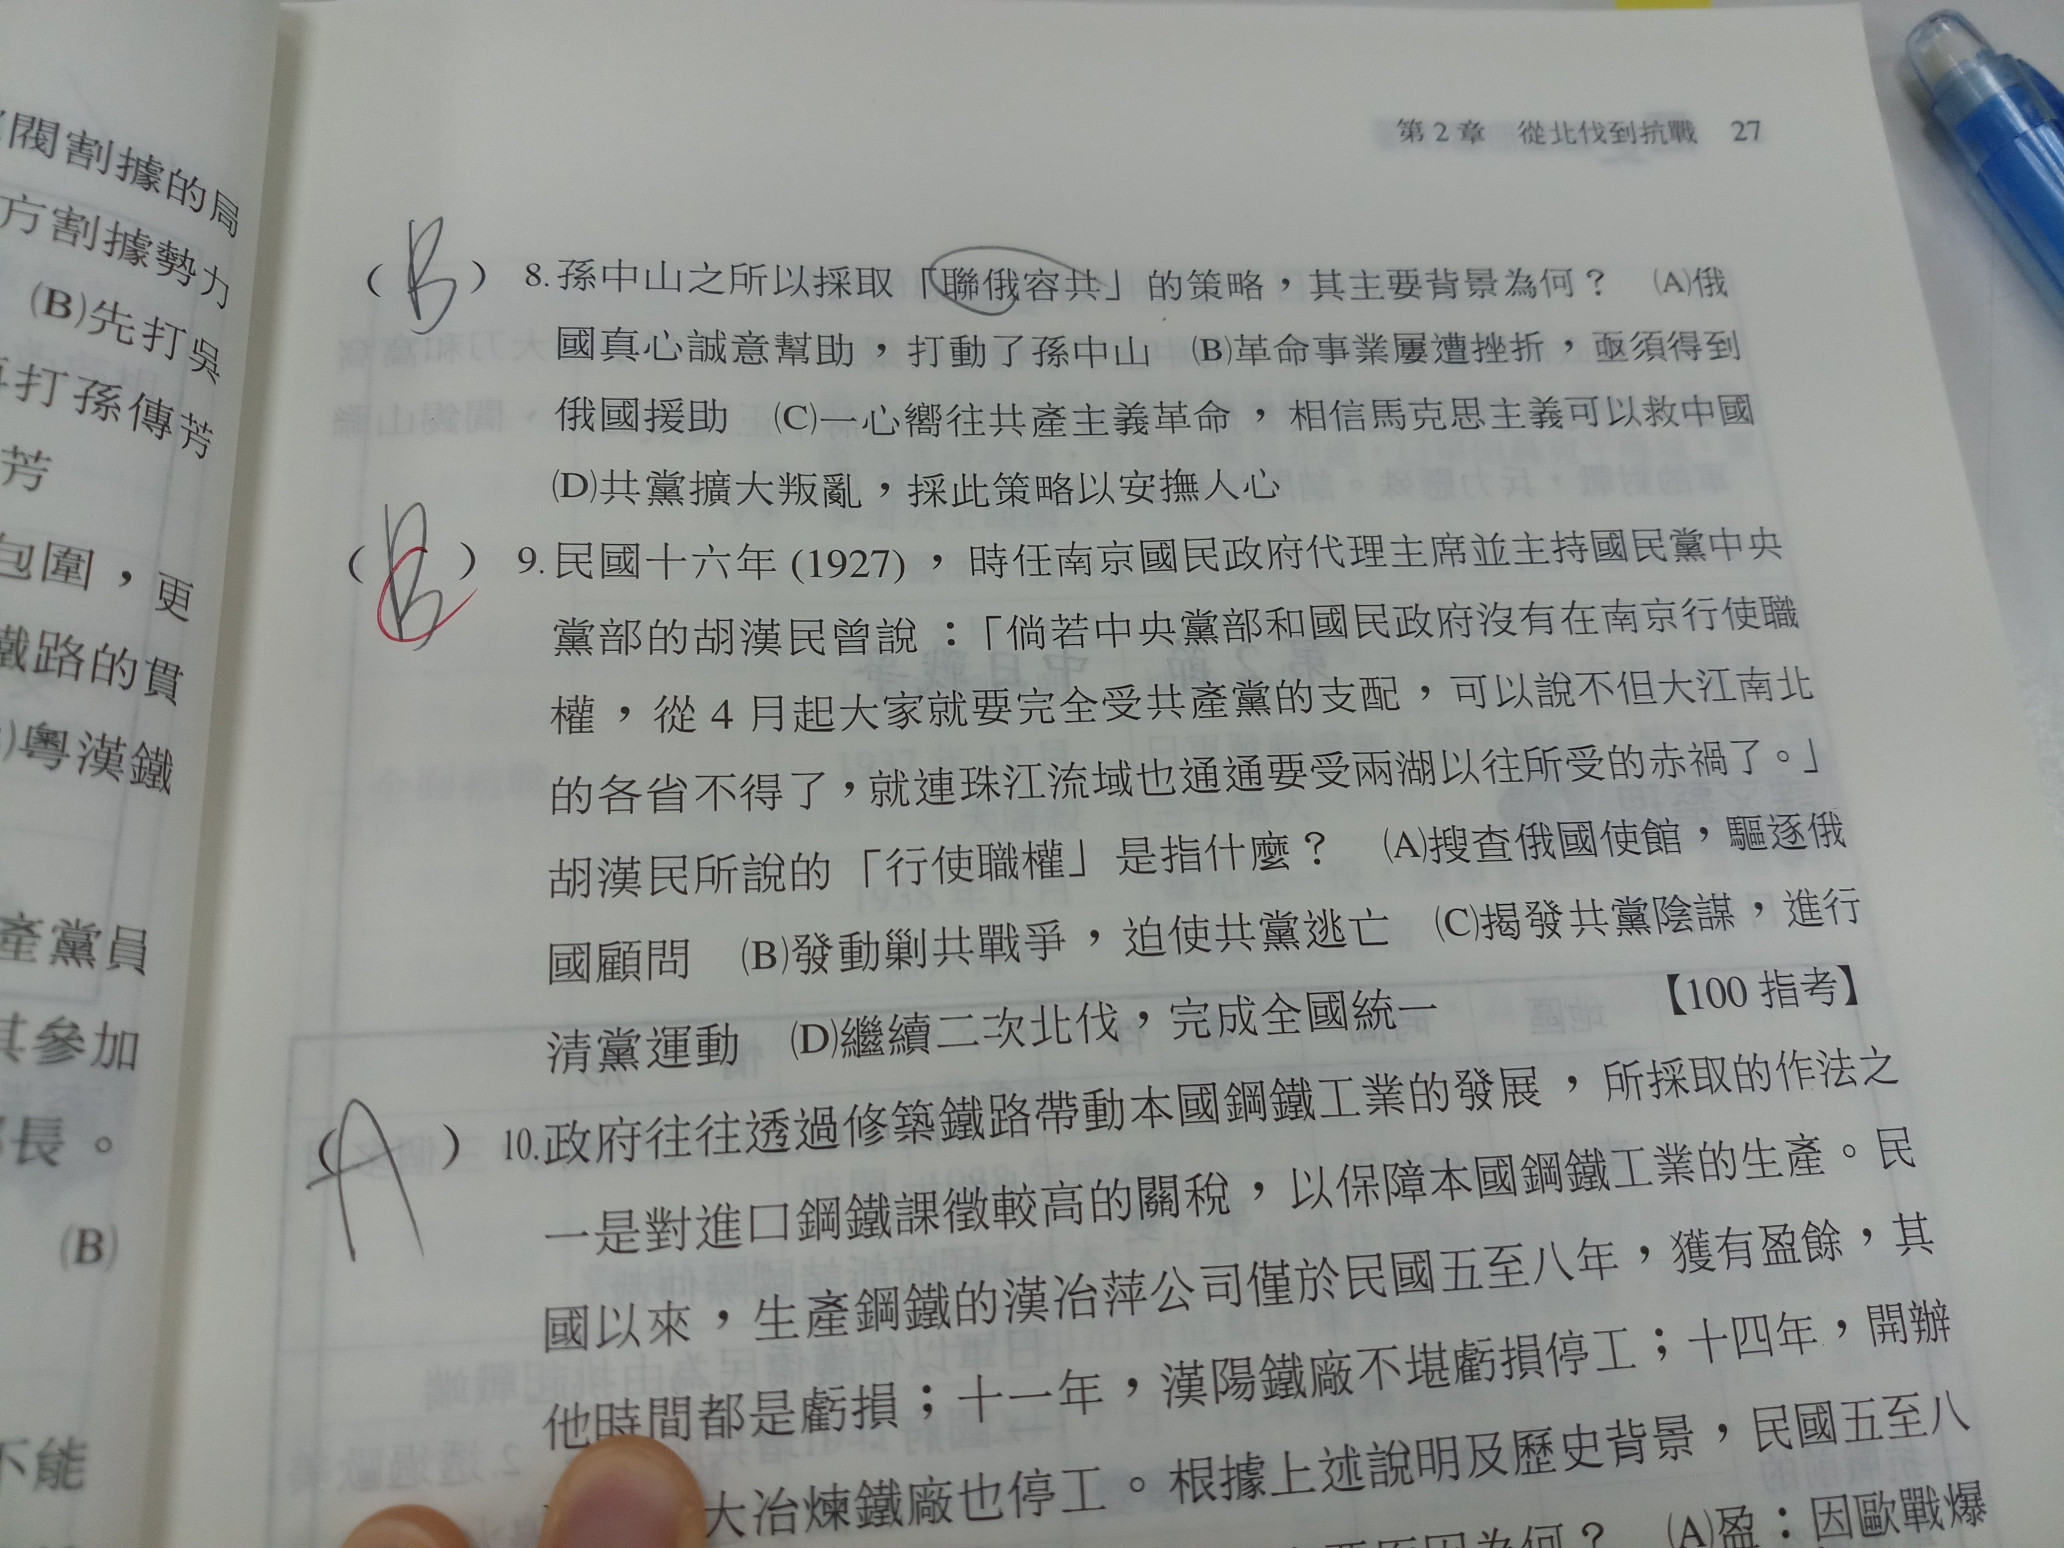 閥割據的局
方割據勢力
(B)先打吳
打孫傳芳
芳
包圍，更
鐵路的貫
)粵漢鐵
產黨員
其參加
長。
(B)
不能
第2章 從北伐到抗戰 27
( B ) 8.孫中山之所以採取「聯俄容共」的策略，其主要背景為何？ (A)俄
國真心誠意幫助，打動了孫中山 (B)革命事業屢遭挫折，亟須得到
俄國援助 (C)一心嚮往共產主義革命，相信馬克思主義可以救中國
(D)共黨擴大叛亂，採此策略以安撫人心
( B C ) 9.民國十六年 (1927)，時任南京國民政府代理主席並主持國民黨中央
黨部的胡漢民曾說：「倘若中央黨部和國民政府沒有在南京行使職
權，從 4 月起大家就要完全受共產黨的支配，可以說不但大江南北
的各省不得了，就連珠江流域也通通要受兩湖以往所受的赤禍了。」
胡漢民所說的「行使職權」是指什麼？ (A)搜查俄國使館，驅逐俄
國顧問 (B)發動剿共戰爭，迫使共黨逃亡 (C)揭發共黨陰謀，進行
清黨運動 (D)繼續二次北伐，完成全國統一 【100 指考】
( A ) 10.政府往往透過修築鐵路帶動本國鋼鐵工業的發展，所採取的作法之
一是對進口鋼鐵課徵較高的關稅，以保障本國鋼鐵工業的生產。民
國以來，生產鋼鐵的漢冶萍公司僅於民國五至八年，獲有盈餘，其
他時間都是虧損；十一年，漢陽鐵廠不堪虧損停工；十四年，開辦
大冶煉鐵廠也停工。根據上述說明及歷史背景，民國五至八
要原因為何？ (A)盈：因歐戰爆